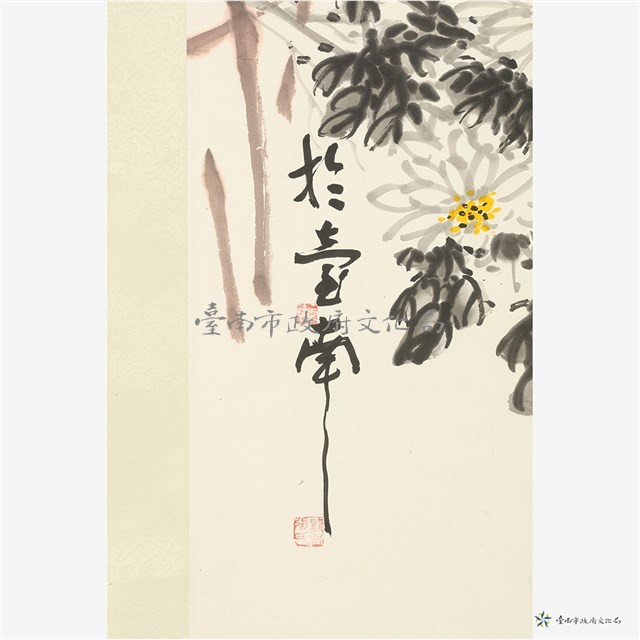 於臺南
臺南市政府文化局
臺南市政府文化局